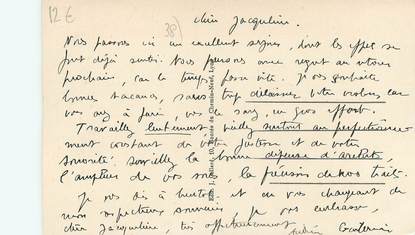 12 €
38
chère Jacqueline.
Nous passons ici un excellent séjour, dont les effets se
font déjà sentir. Nous pensons avec regret au retour
prochain, car le temps passe vite. Je vous souhaite
bonnes vacances, sans trop délaisser votre violon car
vous avez à faire, vous le savez, un gros effort.
Travaillez lentement, veillez surtout au perfectionne-
ment constant de votre justesse et de votre
sonorité. Surveillez la bonne défense d'archet,
l'amplitude de vos sons, la précision de vos traits.
Je vous dis à bientôt et en vous chargeant de
mon respectueux souvenir je vous embrasse,
chère Jacqueline, très affectueusement